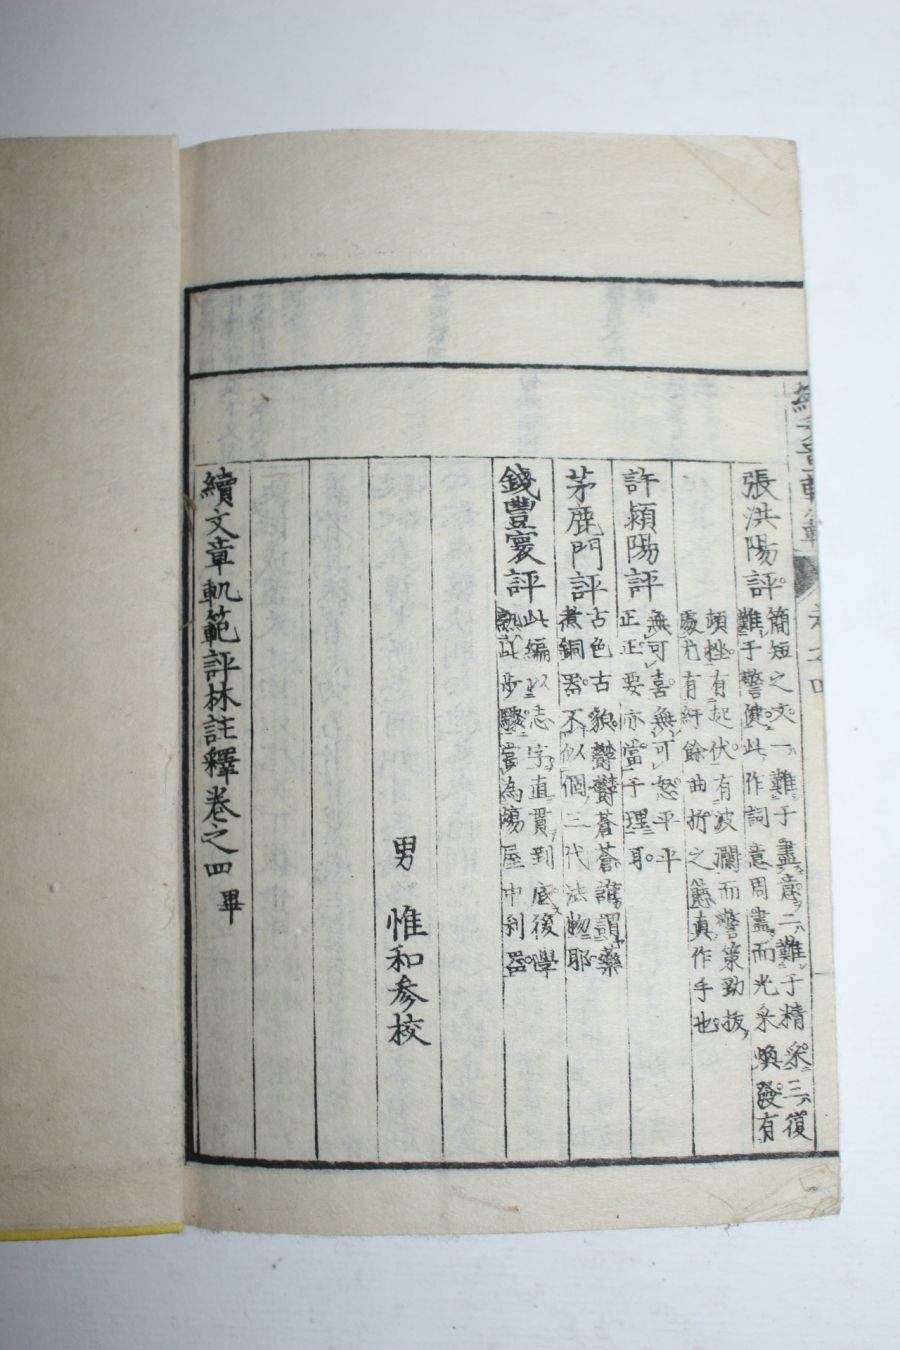 張洪陽評
簡短之文一難于盡意二難于精采三復
難于警健此作詞意周盡而光采煥發有
頓挫有起伏有波瀾而警策勁拔
處尤有紆餘曲折之
真作手也
許潁陽評
無可喜無可怒平平
正正要亦當于理耳
茅鹿門評
古色古貌鬱鬱蒼蒼誰謂藥
煮銅器不似個三代法物耶
錢豐寰評
此編以志字直貫到底後學
熟此步驟當為場屋中利器
男 惟和參校
續文章軌範評林註釋卷之四 畢